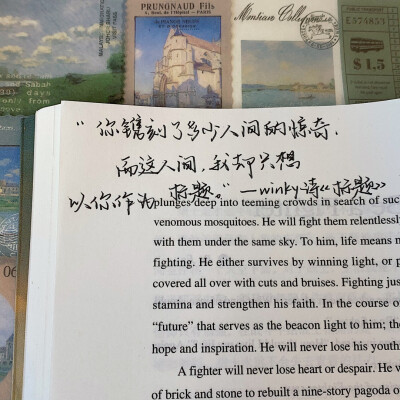 PRUNGNAUD Fils
A. Sent. de l'Hôpital - PARIS
Mentian Collection
£574855
$1.5
and Sabah
10) days
only from
06
“你镌刻了多少人间的惊奇，
而这人间，我却只想
以你作为标题。” —winky诗《标题》
plunges deep into teeming crowds in search of suc
venomous mosquitoes. He will fight them relentlessly
with them under the same sky. To him, life means n
fighting. He either survives by winning light, or p
covered all over with cuts and bruises. Fighting jus
stamina and strengthen his faith. In the course o
“future” that serves as the beacon light to him; the
hope and inspiration. He will never lose his youth
A fighter will never lose heart or despair. He w
of brick and stone to rebuilt a nine-story pagoda o